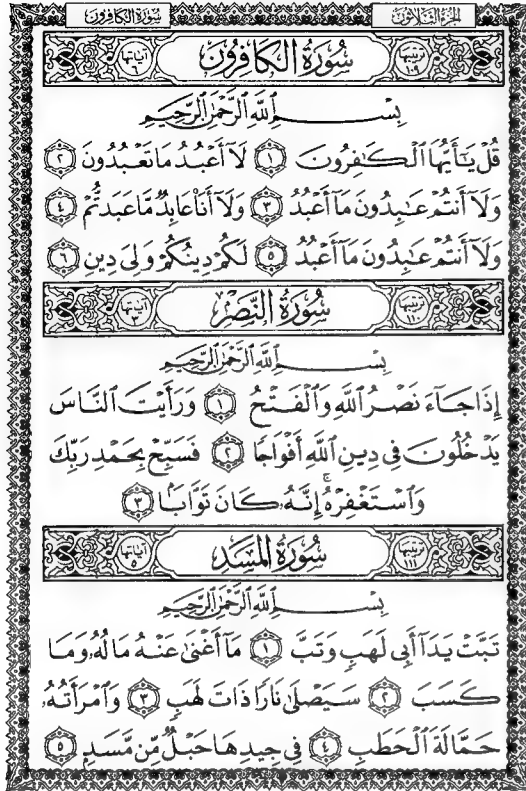 الجزء الثلاثون
سورة الكافرون
ترتيبها ١٠٩
سُورَةُ الكَافِرُونَ
آياتها ٦
بِسْمِ اللَّهِ الرَّحْمَٰنِ الرَّحِيمِ
قُلْ يَٰٓأَيُّهَا ٱلْكَٰفِرُونَ ١ لَآ أَعْبُدُ مَا تَعْبُدُونَ ٢
وَلَآ أَنتُمْ عَٰبِدُونَ مَآ أَعْبُدُ ٣ وَلَآ أَنَا۠ عَابِدٌ مَّا عَبَدتُّمْ ٤
وَلَآ أَنتُمْ عَٰبِدُونَ مَآ أَعْبُدُ ٥ لَكُمْ دِينُكُمْ وَلِىَ دِينِ ٦
ترتيبها ١١٠
سُورَةُ النَّصْرِ
آياتها ٣
بِسْمِ اللَّهِ الرَّحْمَٰنِ الرَّحِيمِ
إِذَا جَآءَ نَصْرُ ٱللَّهِ وَٱلْفَتْحُ ١ وَرَأَيْتَ ٱلنَّاسَ
يَدْخُلُونَ فِى دِينِ ٱللَّهِ أَفْوَاجًا ٢ فَسَبِّحْ بِحَمْدِ رَبِّكَ
وَٱسْتَغْفِرْهُ ۚ إِنَّهُۥ كَانَ تَوَّابًۢا ٣
ترتيبها ١١١
سُورَةُ المَسَدِ
آياتها ٥
بِسْمِ اللَّهِ الرَّحْمَٰنِ الرَّحِيمِ
تَبَّتْ يَدَآ أَبِى لَهَبٍ وَتَبَّ ١ مَآ أَغْنَىٰ عَنْهُ مَالُهُۥ وَمَا
كَسَبَ ٢ سَيَصْلَىٰ نَارًا ذَاتَ لَهَبٍ ٣ وَٱمْرَأَتُهُۥ
حَمَّالَةَ ٱلْحَطَبِ ٤ فِى جِيدِهَا حَبْلٌ مِّن مَّسَدٍۭ ٥